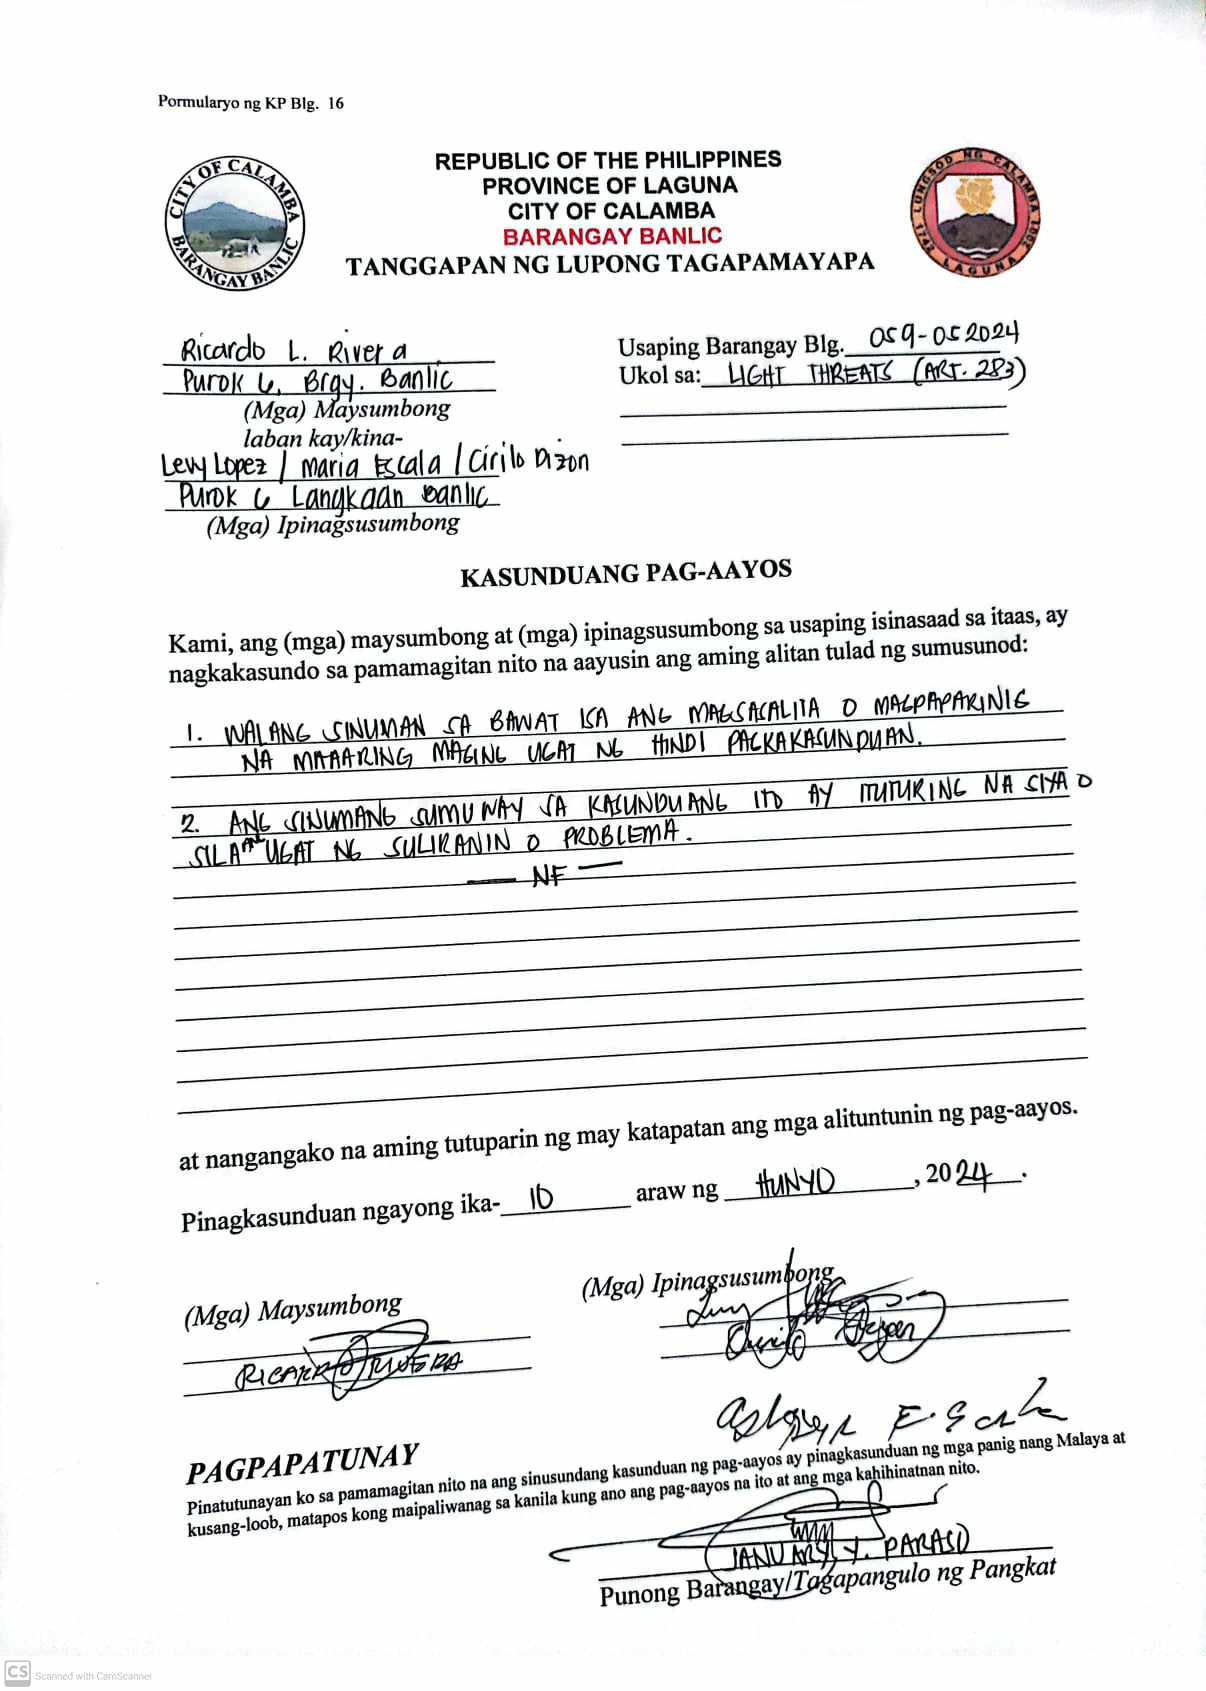 Pormularyo ng KP Blg. 16
CITY OF CALAMBA
BARANGAY BANLIC
REPUBLIC OF THE PHILIPPINES
PROVINCE OF LAGUNA
CITY OF CALAMBA
BARANGAY BANLIC
TANGGAPAN NG LUPONG TAGAPAMAYAPA
LUNGSOD NG CALAMBA
LAGUNA
Ricardo L. Rivera
Purok 6, Brgy. Banlic
(Mga) Maysumbong
laban kay/kina-
Levy Lopez / Maria Escala / Cirilo Dizon
Purok 6 Langkaan Banlic
(Mga) Ipinagsusumbong
Usaping Barangay Blg. 059-052024
Ukol sa: LIGHT THREATS (ART. 283)
KASUNDUANG PAG-AAYOS
Kami, ang (mga) maysumbong at (mga) ipinagsusumbong sa usaping isinasaad sa itaas, ay
nagkakasundo sa pamamagitan nito na aayusin ang aming alitan tulad ng sumusunod:
1. WALANG SINUMAN SA BAWAT ISA ANG MAGSASALITA O MAGPAPARINIG
NA MAAARING MAGING UGAT NG HINDI PAGKAKASUNDUAN.
2. ANG SINUMANG SUMUWAY SA KASUNDUANG ITO AY ITUTURING NA SIYA O
SILA ANG UGAT NG SULIRANIN O PROBLEMA.
— NF —
at nangangako na aming tutuparin ng may katapatan ang mga alituntunin ng pag-aayos.
Pinagkasunduan ngayong ika- 10 araw ng HUNYO, 2024.
(Mga) Maysumbong
RICARDO RIVERA
(Mga) Ipinagsusumbong
PAGPAPATUNAY
Pinatutunayan ko sa pamamagitan nito na ang sinusundang kasunduan ng pag-aayos ay pinagkasunduan ng mga panig nang Malaya at
kusang-loob, matapos kong maipaliwanag sa kanila kung ano ang pag-aayos na ito at ang mga kahihinatnan nito.
JANUARY Y. PARASO
Punong Barangay/Tagapangulo ng Pangkat
CS Scanned with CamScanner